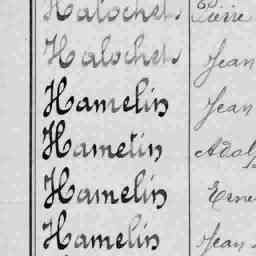 Halochet Pierre
Halochet Jean
Hamelin Jean
Hamelin Adol
Hamelin Erne
Hamelin Jean